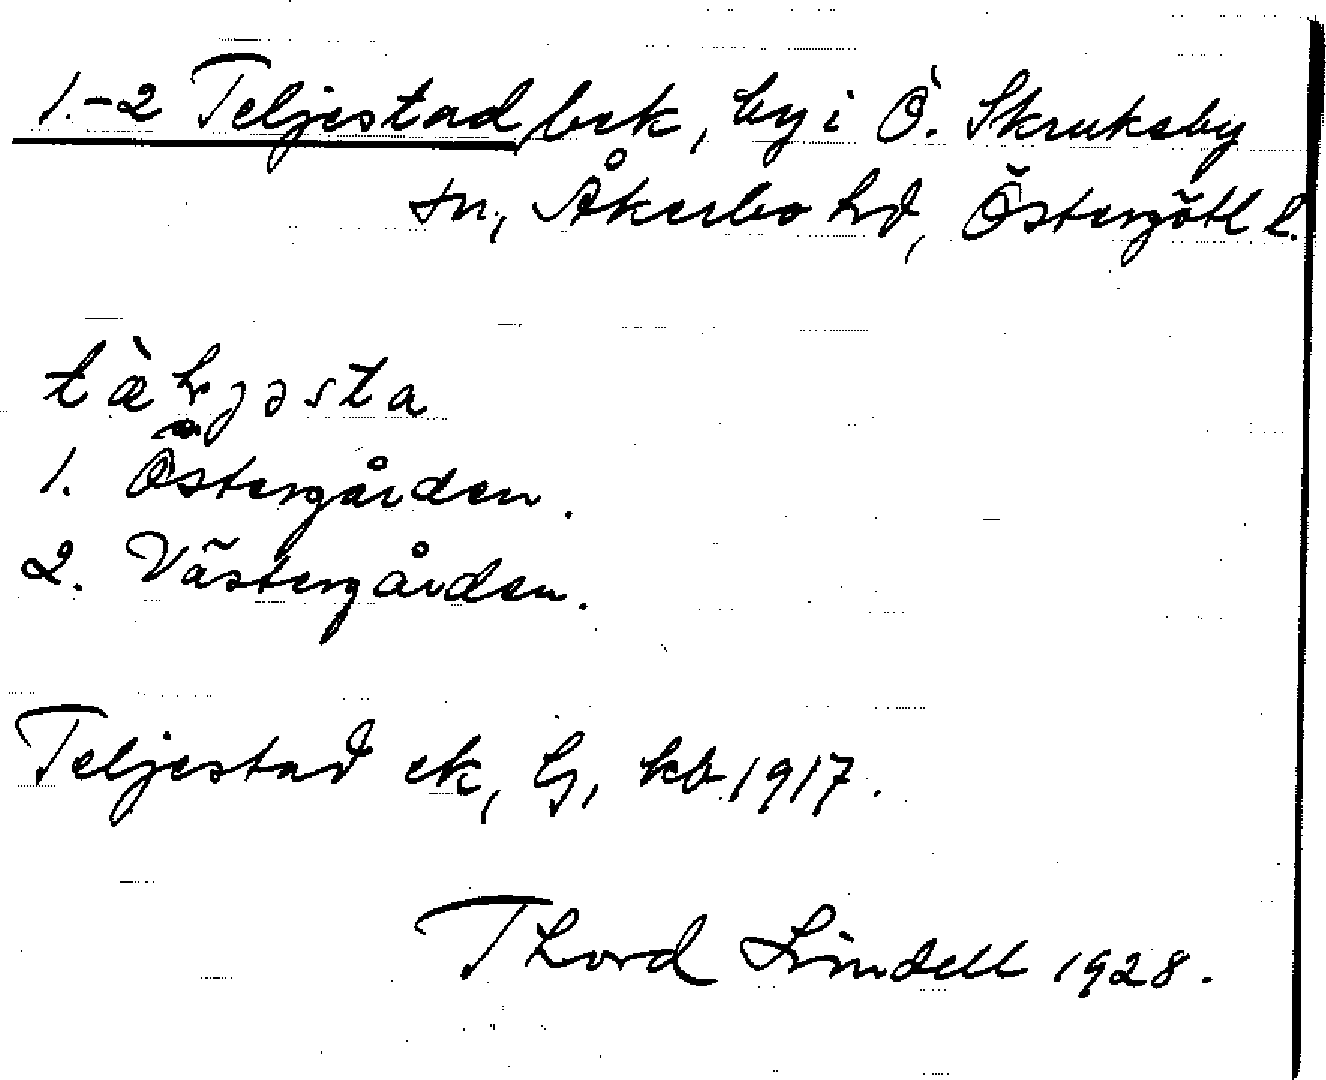 1.-2 Teljestad bek, by i Ö. Skrukeby
sn, Åkerbo hd, Östergötl l.
1. Östergården.
2. Västergården.
Teljestad ek, G, kb 1917.
Thord Lindell 1928.